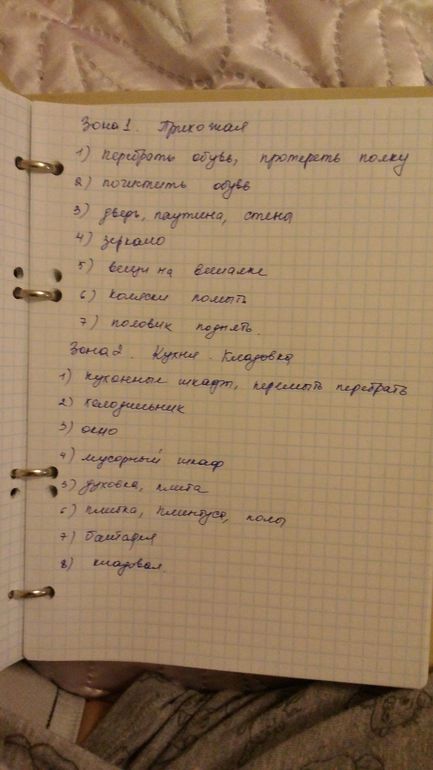 Зона 1. Прихожая
1) перебрать обувь, протереть полку
2) почистить обувь
3) дверь, паутина, стены
4) зеркало
5) вещи на вешалке
6) коляски помыть
7) половик поднять.
Зона 2. Кухня. Кладовка
1) кухонные шкафы, перемыть перебрать
2) холодильник
3) окно
4) мусорный шкаф
5) духовка, плита
6) плитка, плинтуса, полы
7) батарея
8) кладовая.